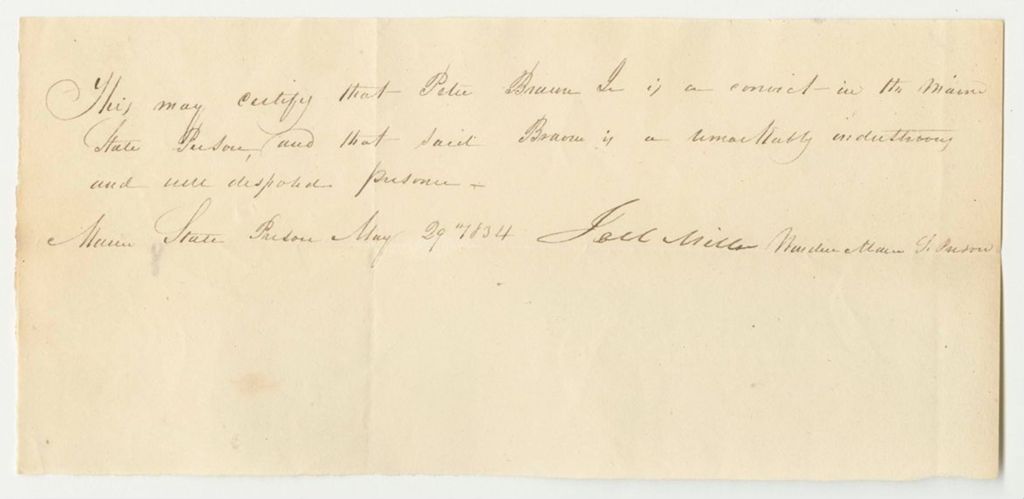 This may certify that Peter Brawn Jr is a convict in the Maine
State Prison, and that said Brawn is a remarkably industrious
and well disposed prisoner -
Maine State Prison May 29th 1834 Joel Miller Warden Maine S. Prison